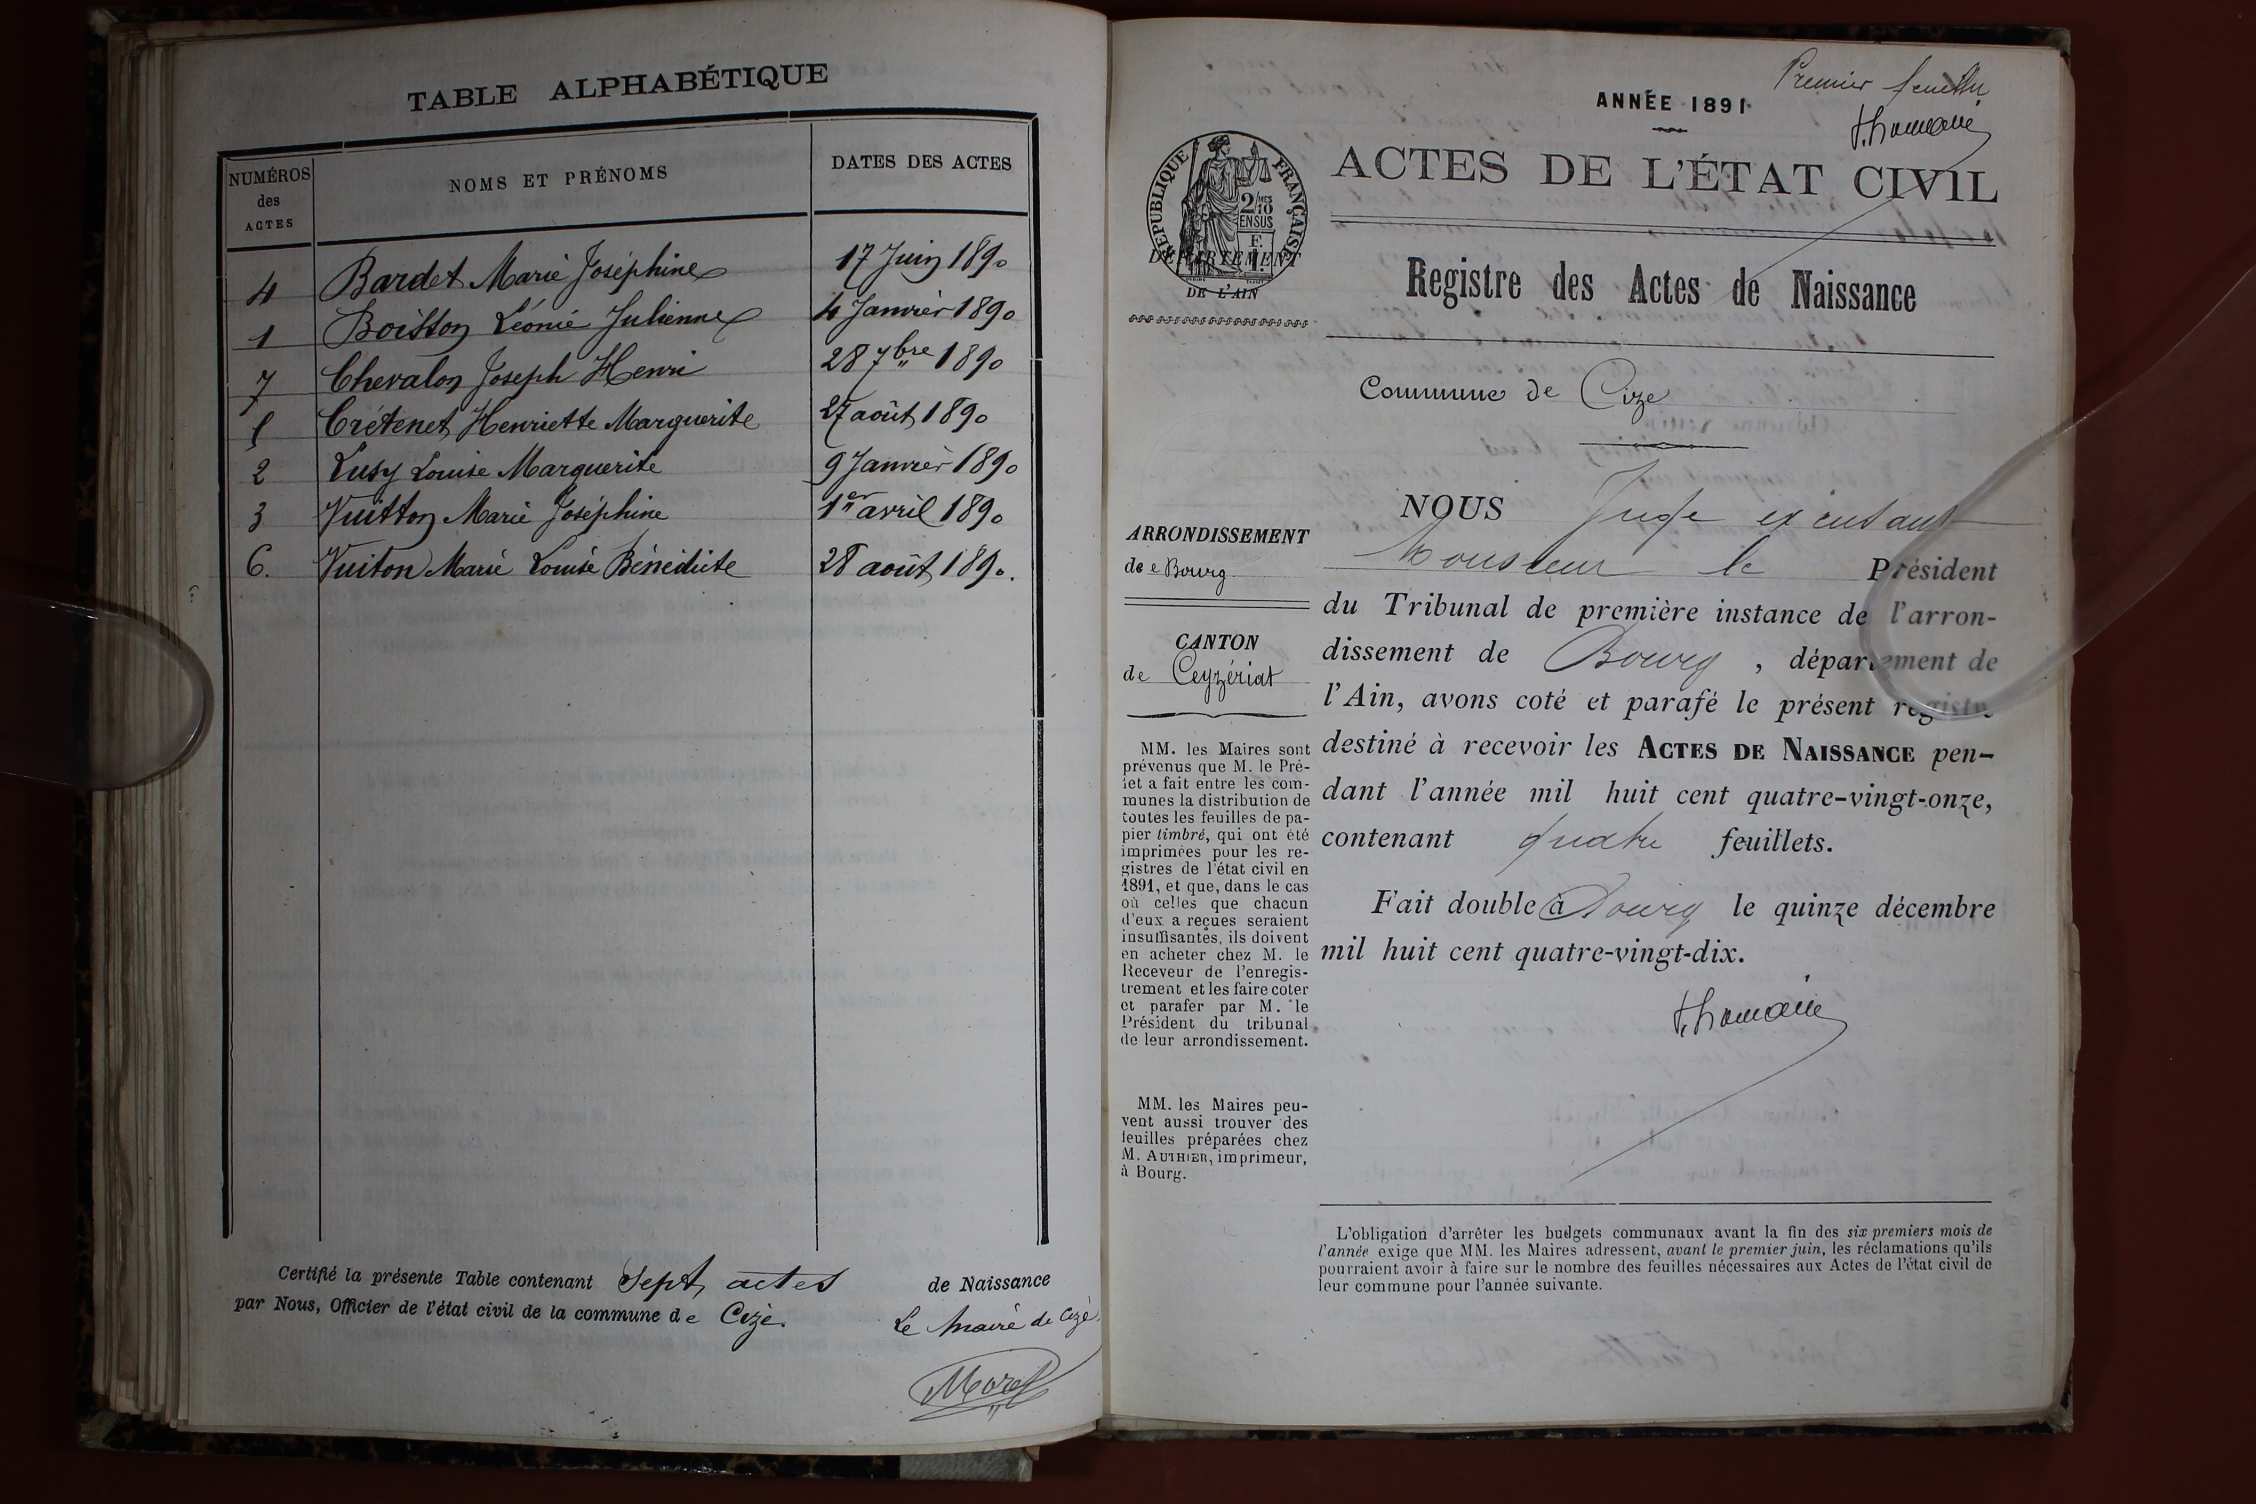 TABLE ALPHABÉTIQUE
NUMÉROS des ACTES
NOMS ET PRÉNOMS
DATES DES ACTES
4 Bardet Marie Joséphine 17 Juin 1890
1 Boisson Léonie Julienne 4 Janvier 1890
7 Chevalon Joseph Henri 28 7bre 1890
5 Crétenet Henriette Marguerite 27 août 1890
2 Lusy Louise Marguerite 9 Janvier 1890
3 Vuitton Marie Joséphine 1er avril 1890
6. Vuiton Marie Louise Bénédicte 28 août 1890.
Certifié la présente Table contenant Sept actes de Naissance
par Nous, Officier de l'état civil de la commune de Cize.
Le Maire de Cize
Morel
Premier feuillet
ANNÉE 1891
ACTES DE L'ÉTAT CIVIL
RÉPUBLIQUE FRANÇAISE
2/10 MES
EN SUS
DÉPARTEMENT
DE L'AIN
Registre des Actes de Naissance
Commune de Cize
ARRONDISSEMENT
de Bourg
CANTON
de Ceyzériat
MM. les Maires sont
prévenus que M. le Pré-
fet a fait entre les com-
munes la distribution de
toutes les feuilles de pa-
pier timbré, qui ont été
imprimées pour les re-
gistres de l'état civil en
1891, et que, dans le cas
où celles que chacun
d'eux a reçues seraient
insuffisantes, ils doivent
en acheter chez M. le
Receveur de l'enregis-
trement et les faire coter
et parafer par M. le
Président du tribunal
de leur arrondissement.
MM. les Maires peu-
vent aussi trouver des
feuilles préparées chez
M. AUTHIER, imprimeur,
à Bourg.
NOUS Juge
Monsieur le Président
du Tribunal de première instance de l'arron-
dissement de Bourg, département de
l'Ain, avons coté et parafé le présent registre
destiné à recevoir les ACTES DE NAISSANCE pen-
dant l'année mil huit cent quatre-vingt-onze,
contenant quatre feuillets.
Fait double à Bourg le quinze décembre
mil huit cent quatre-vingt-dix.
L'obligation d'arrêter les budgets communaux avant la fin des six premiers mois de
l'année exige que MM. les Maires adressent, avant le premier juin, les réclamations qu'ils
pourraient avoir à faire sur le nombre des feuilles nécessaires aux Actes de l'état civil de
leur commune pour l'année suivante.